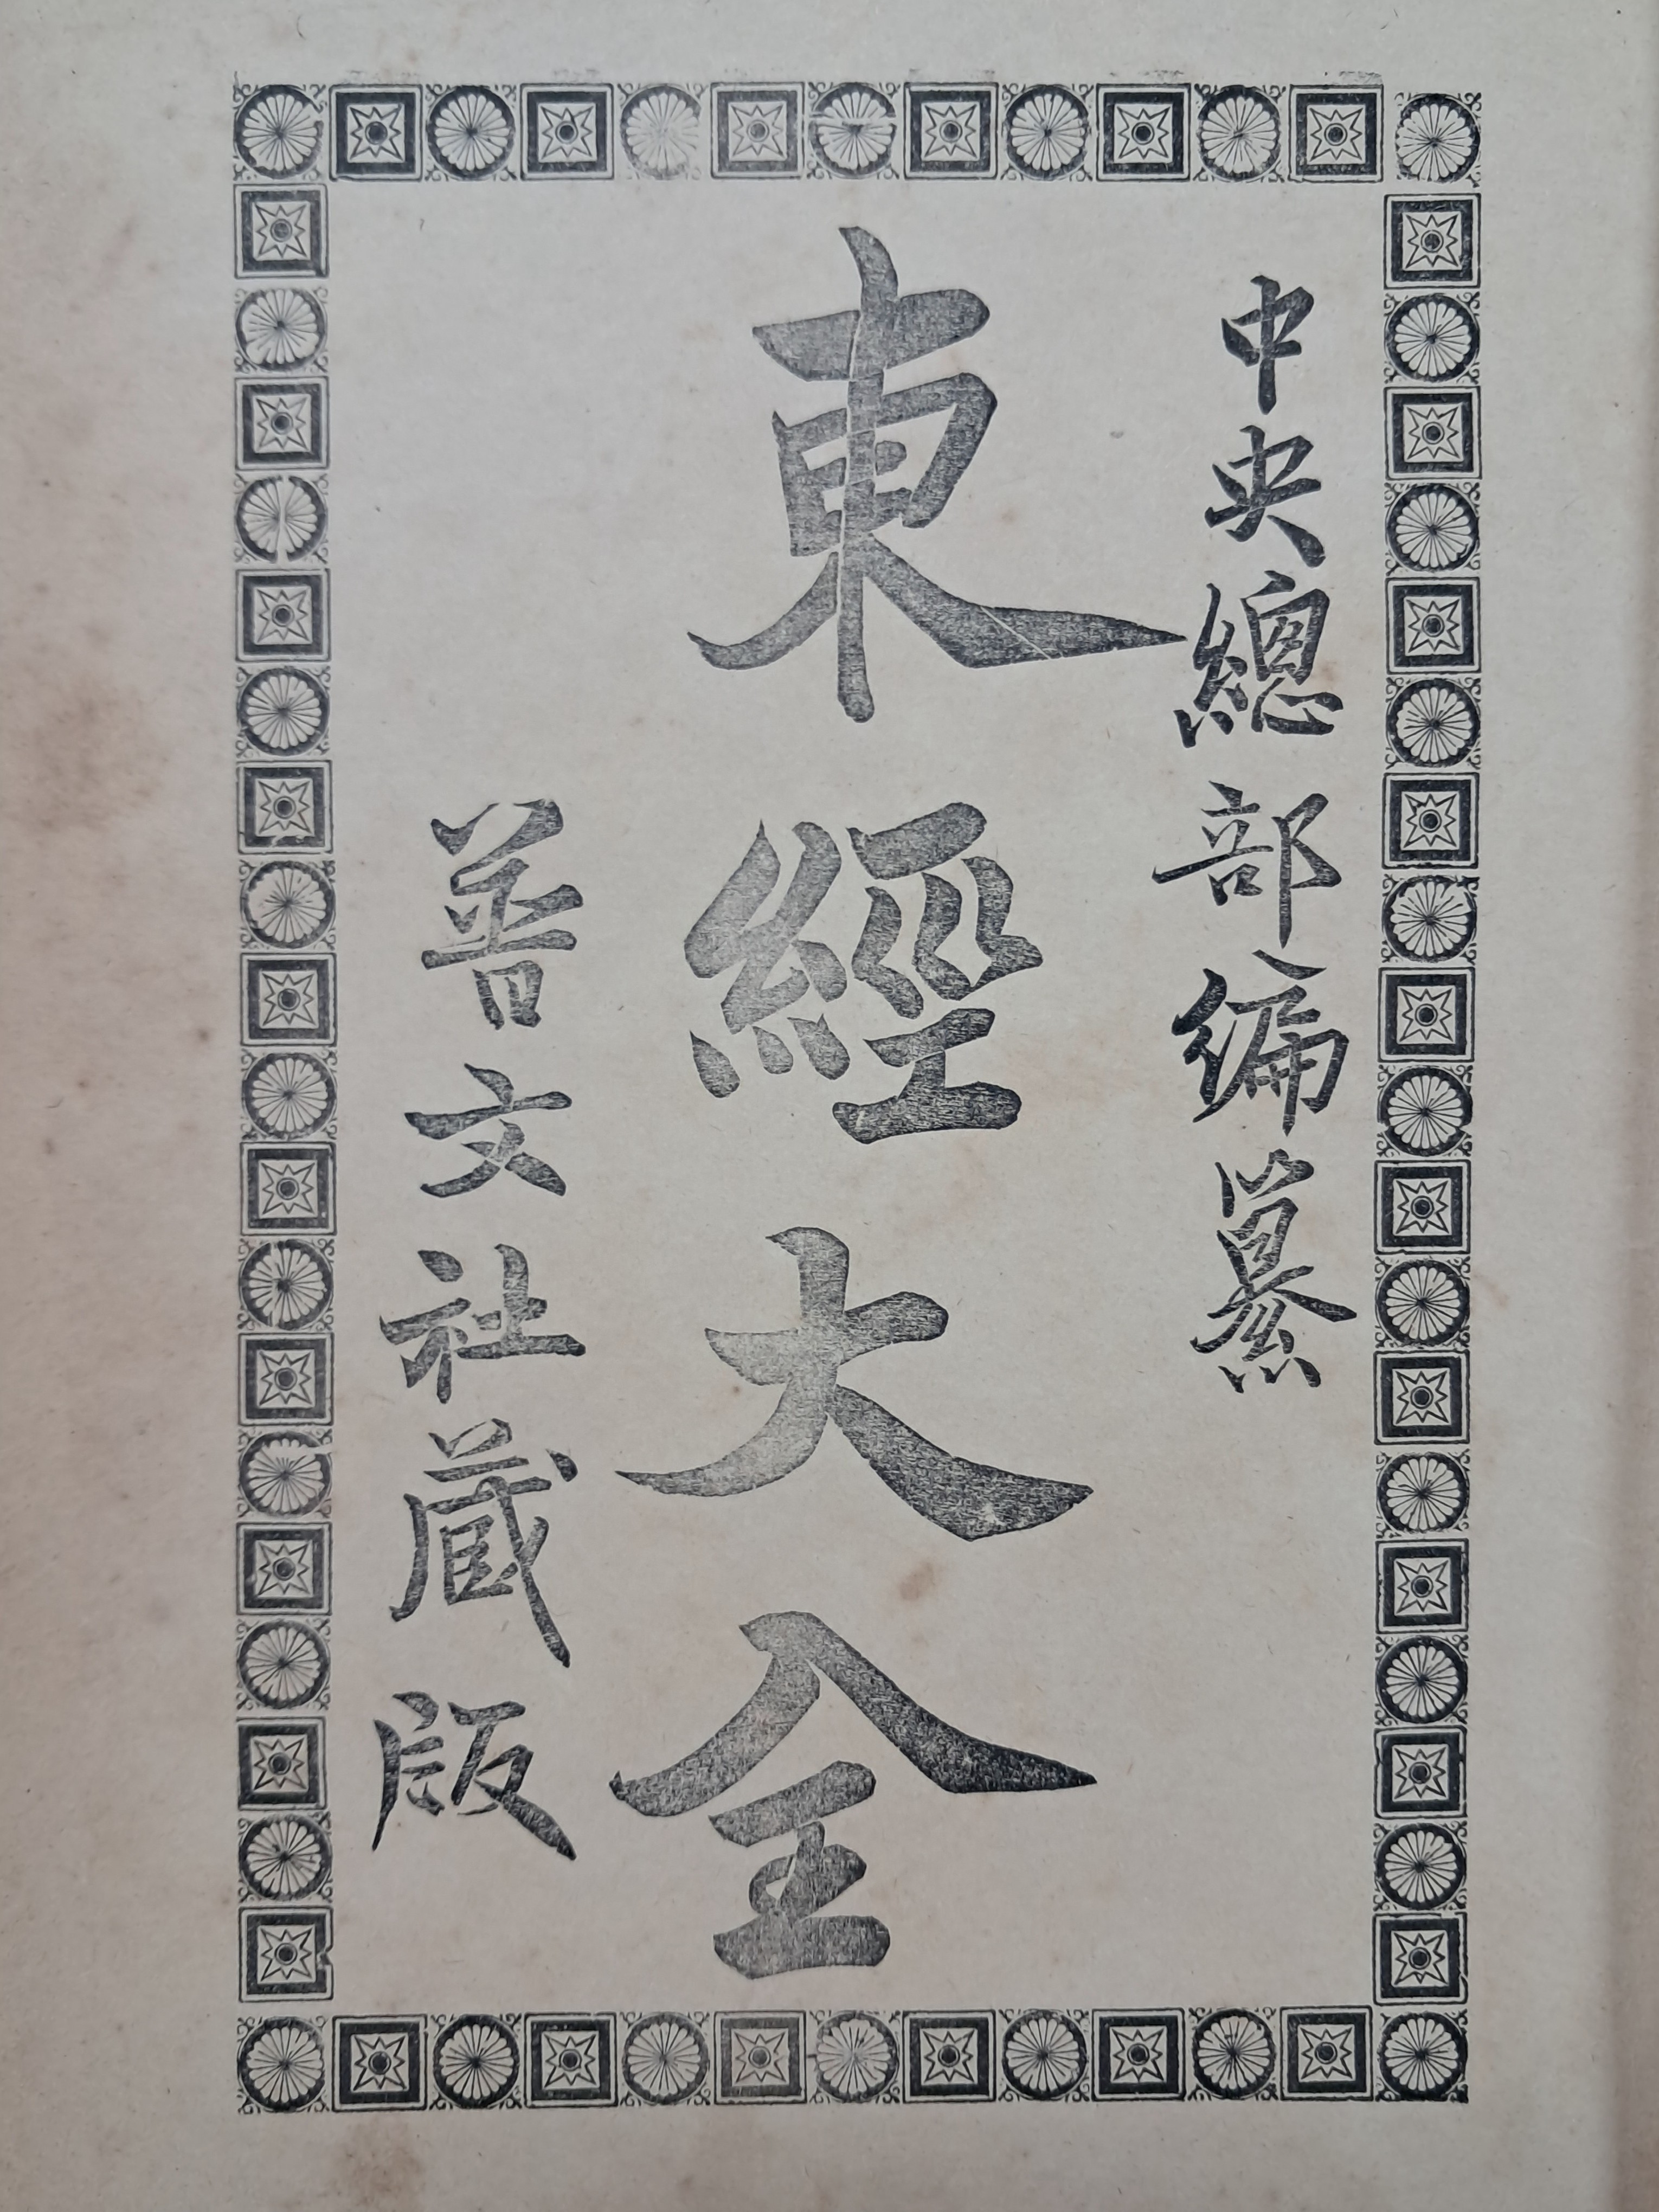 中央總部編纂
東經大全
普文社蔵版